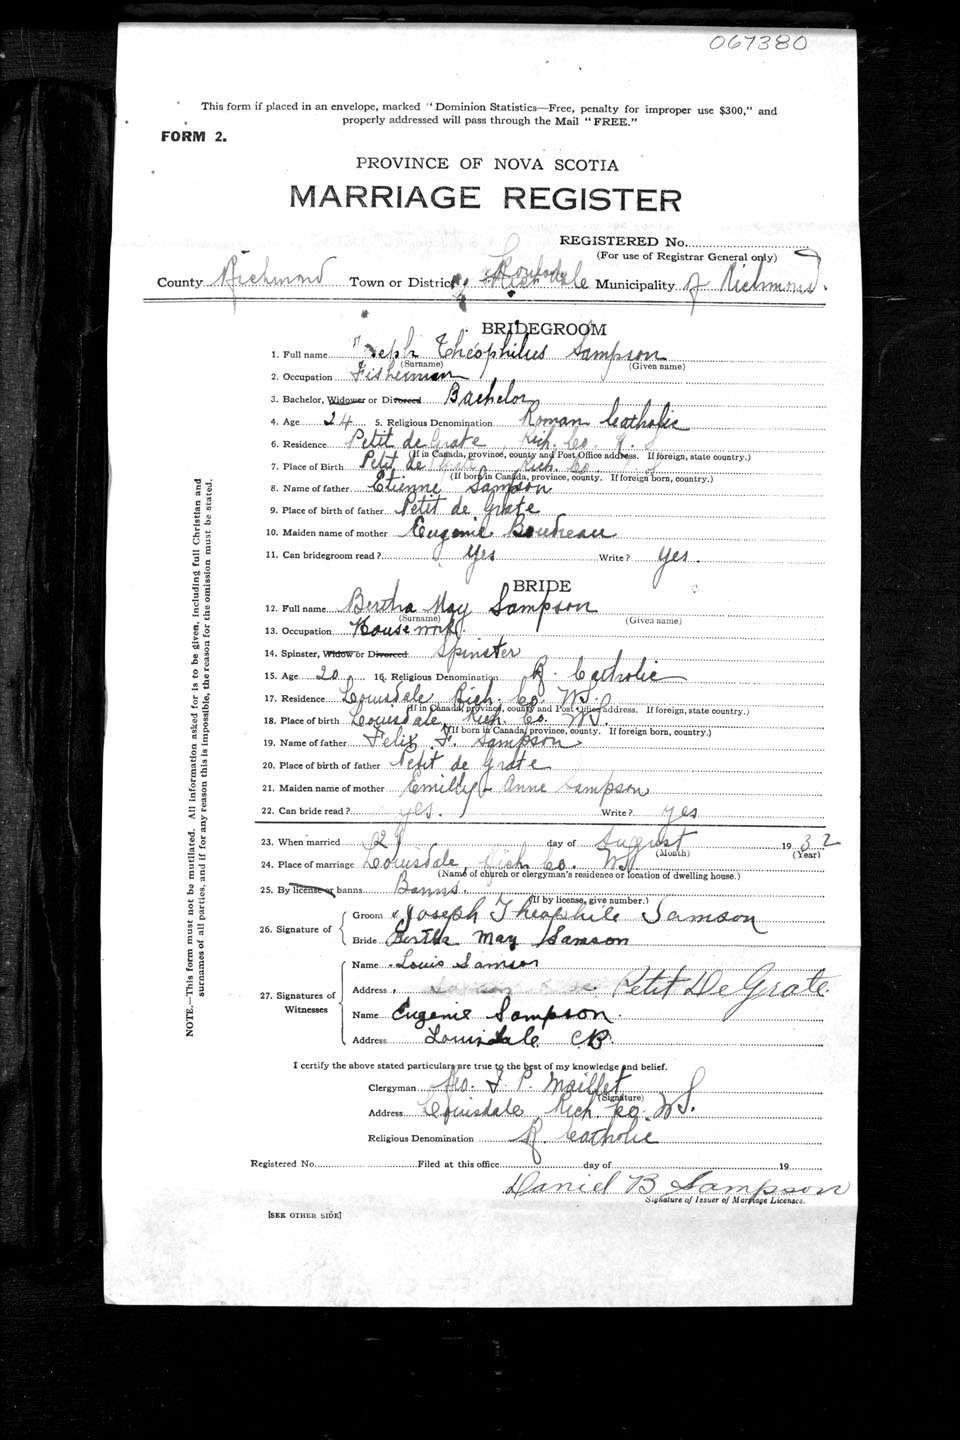 067380
This form if placed in an envelope, marked "Dominion Statistics—Free, penalty for improper use $300," and
properly addressed will pass through the Mail "FREE."
FORM 2.
PROVINCE OF NOVA SCOTIA
MARRIAGE REGISTER
REGISTERED No.
(For use of Registrar General only)
County Richmond Town or District Louisdale Municipality of Richmond.
BRIDEGROOM
1. Full name Joseph Théophilus Sampson
(Surname) (Given name)
2. Occupation Fisherman
3. Bachelor, Widower or Divorced Bachelor
4. Age 24 5. Religious Denomination Roman Catholic
6. Residence Petit de Grate Rich. Co. N. S
(If in Canada, province, county and Post Office address. If foreign, state country.)
7. Place of Birth Petit de Grate Rich. Co. N. S
(If born in Canada, province, county. If foreign born, country.)
8. Name of father Etienne Sampson
9. Place of birth of father Petit de Grate
10. Maiden name of mother Eugenie Boudreau
11. Can bridegroom read? Yes Write? Yes.
BRIDE
12. Full name Bertha May Sampson
(Surname) (Given name)
13. Occupation Housework.
14. Spinster, Widow or Divorced Spinster
15. Age 20 16. Religious Denomination R. Catholic
17. Residence Louisdale Rich. Co. N.S.
(If in Canada, province, county and Post Office address. If foreign, state country.)
18. Place of birth Louisdale, Rich. Co. N.S.
(If born in Canada, province, county. If foreign born, country.)
19. Name of father Felix F. Sampson
20. Place of birth of father Petit de Grate
21. Maiden name of mother Emilly Anne Sampson
22. Can bride read? yes. Write? yes
23. When married 29 day of August 1932
(Month) (Year)
24. Place of marriage Louisdale, Rich Co. N.S
(Name of church or clergyman's residence or location of dwelling house.)
25. By license or banns Banns.
(If by license, give number.)
26. Signature of
Groom Joseph Theophile Samson
Bride Bertha May Samson
27. Signatures of Witnesses
Name Louis Samson
Address Petit De Grate
Name Eugenie Sampson
Address Louisdale CB.
I certify the above stated particulars are true to the best of my knowledge and belief.
Clergyman Geo. J. P. Maillet
(Signature)
Address Louisdale Rich. Co. N.S.
Religious Denomination R Catholic
Registered No. Filed at this office day of 19
Daniel B Sampson
Signature of Issuer of Marriage Licenses.
[SEE OTHER SIDE]
NOTE.—This form must not be mutilated. All information asked for is to be given, including full Christian and
surnames of all parties, and if for any reason this is impossible, the reason for the omission must be stated.